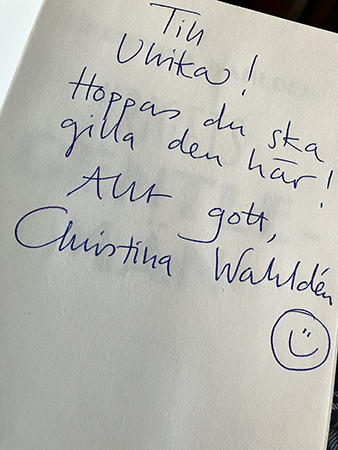 Till
Ulrika!
Hoppas du ska
gilla den här!
Allt gott,
Christina Wahldén